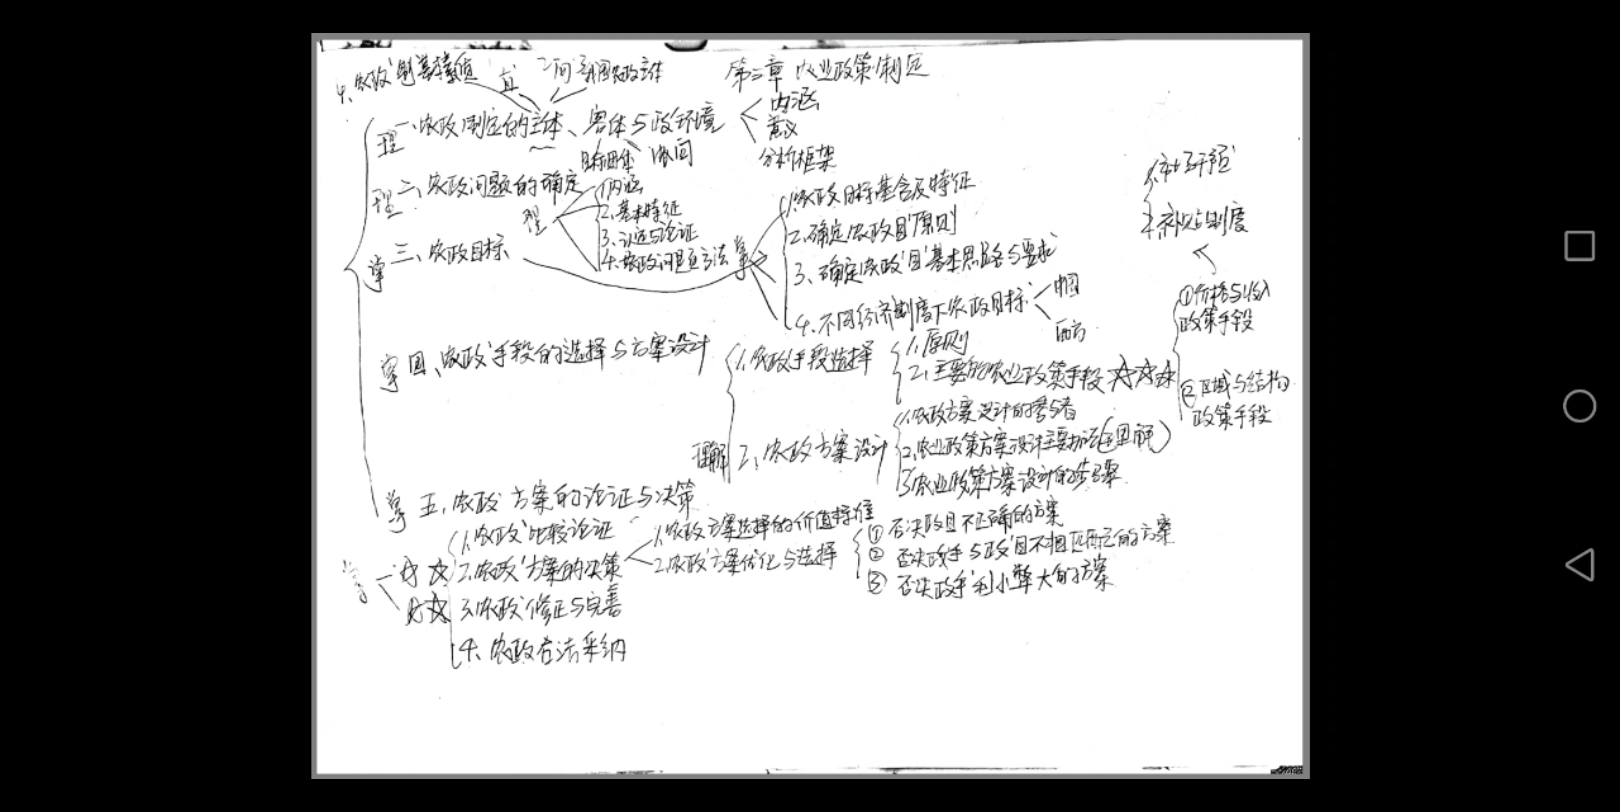 第三章 农业政策制定
一、农政制定的主体、客体与政环境
内涵
意义
分析框架
二、农政问题的确定
1.内涵
2.基本特征
3.认定与论证
三、农政目标
1.农政目标基含及特征
2.确定农政目原则
3.确定农政目基本思路与要求
4.不同经济制度下农政目标
中国
西方
四、农政手段的选择与方案设计
1.农政手段选择
1.原则
2.主要的农业政策手段
①价格与收入
政策手段
②区域与结构
政策手段
理解
2、农政方案设计
1.农政方案设计的参与者
2.农业政策方案设计主要办法
3.农业政策方案设计的步骤
掌 五、农政方案的论证与决策
1.农政比较论证
2.农政方案的决策
1.农政方案选择的价值标准
2.农政方案优化与选择
① 否决政目不正确的方案
② 否决政手与政目不相匹配的方案
③ 否决政手利小弊大的方案
3.农政修正与完善
4、农政合法采纳